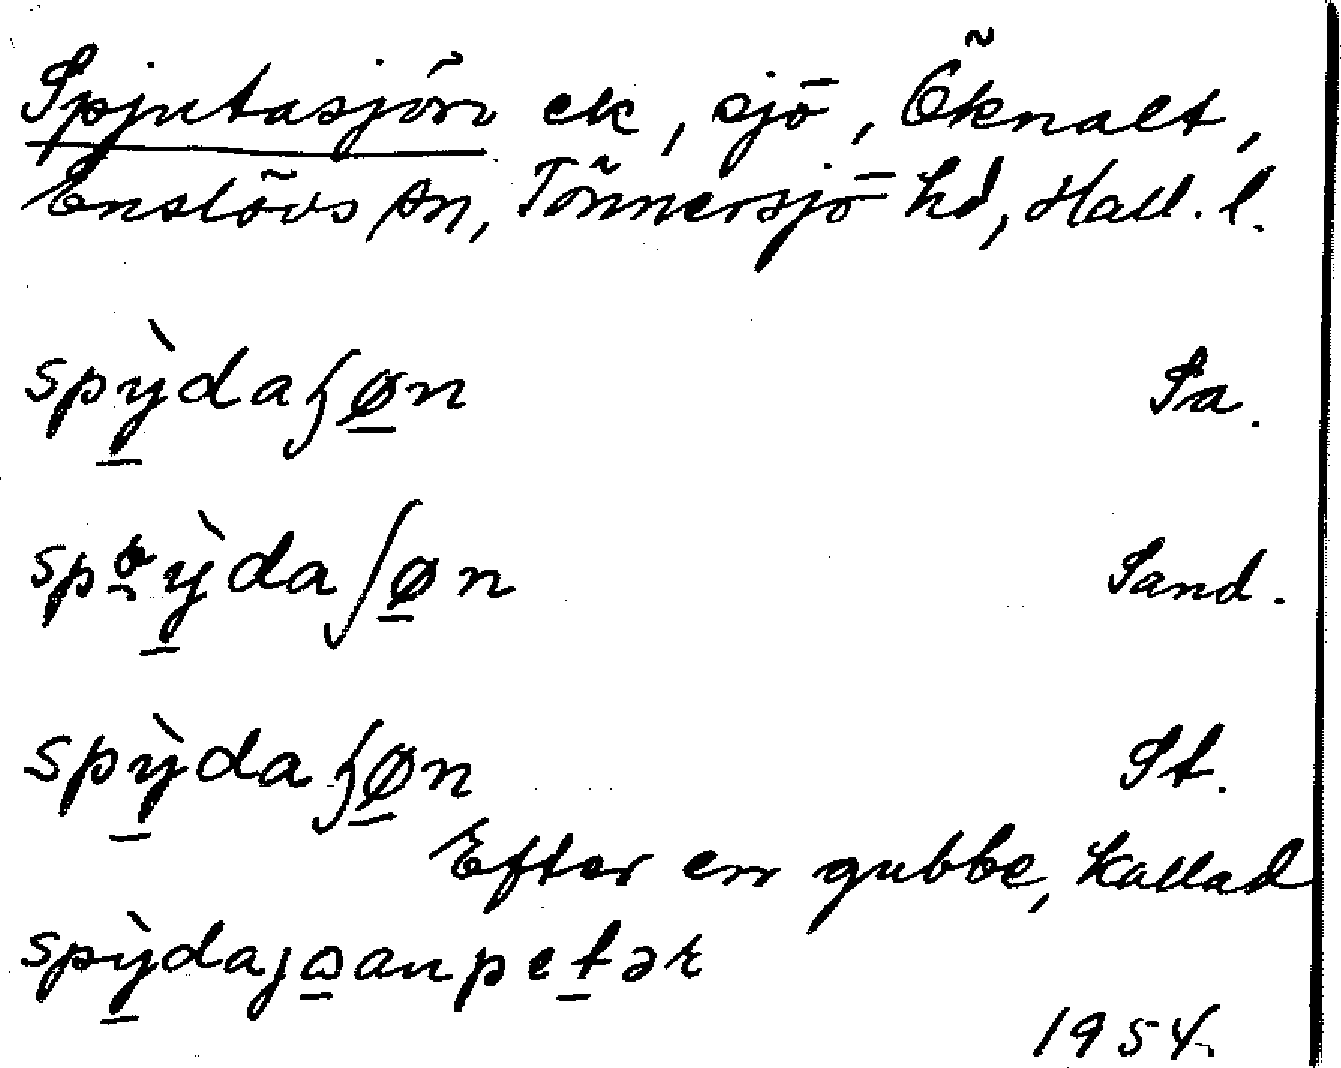 Spjutasjön ek, sjö, Öknalt,
Enslövs sn, Tönnersjö hd, Hall. l.
spỳdaʃøn Sa.
spỳdaʃøn Sand.
spỳdaʃøn St.
Efter en gubbe, kallad
1954.